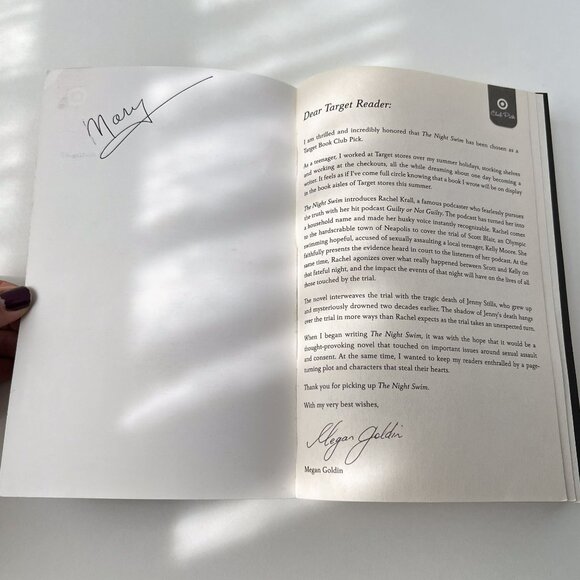 Mary
Club Pick
Dear Target Reader:
I am thrilled and incredibly honored that The Night Swim has been chosen as a
Target Book Club Pick.
As a teenager, I worked at Target stores over my summer holidays, stocking shelves
and working at the checkouts, all the while dreaming about one day becoming a
writer. It feels as if I've come full circle knowing that a book I wrote will be on display
in the book aisles of Target stores this summer.
The Night Swim introduces Rachel Krall, a famous podcaster who fearlessly pursues
the truth with her hit podcast Guilty or Not Guilty. The podcast has turned her into
a household name and made her husky voice instantly recognizable. Rachel comes
to the hardscrabble town of Neapolis to cover the trial of Scott Blair, an Olympic
swimming hopeful, accused of sexually assaulting a local teenager, Kelly Moore. She
faithfully presents the evidence heard in court to the listeners of her podcast. At the
same time, Rachel agonizes over what really happened between Scott and Kelly on
that fateful night, and the impact the events of that night will have on the lives of all
those touched by the trial.
The novel interweaves the trial with the tragic death of Jenny Stills, who grew up
and mysteriously drowned two decades earlier. The shadow of Jenny's death hangs
over the trial in more ways than Rachel expects as the trial takes an unexpected turn.
When I began writing The Night Swim, it was with the hope that it would be a
thought-provoking novel that touched on important issues around sexual assault
and consent. At the same time, I wanted to keep my readers enthralled by a page-
turning plot and characters that steal their hearts.
Thank you for picking up The Night Swim.
With my very best wishes,
Megan Goldin
Megan Goldin